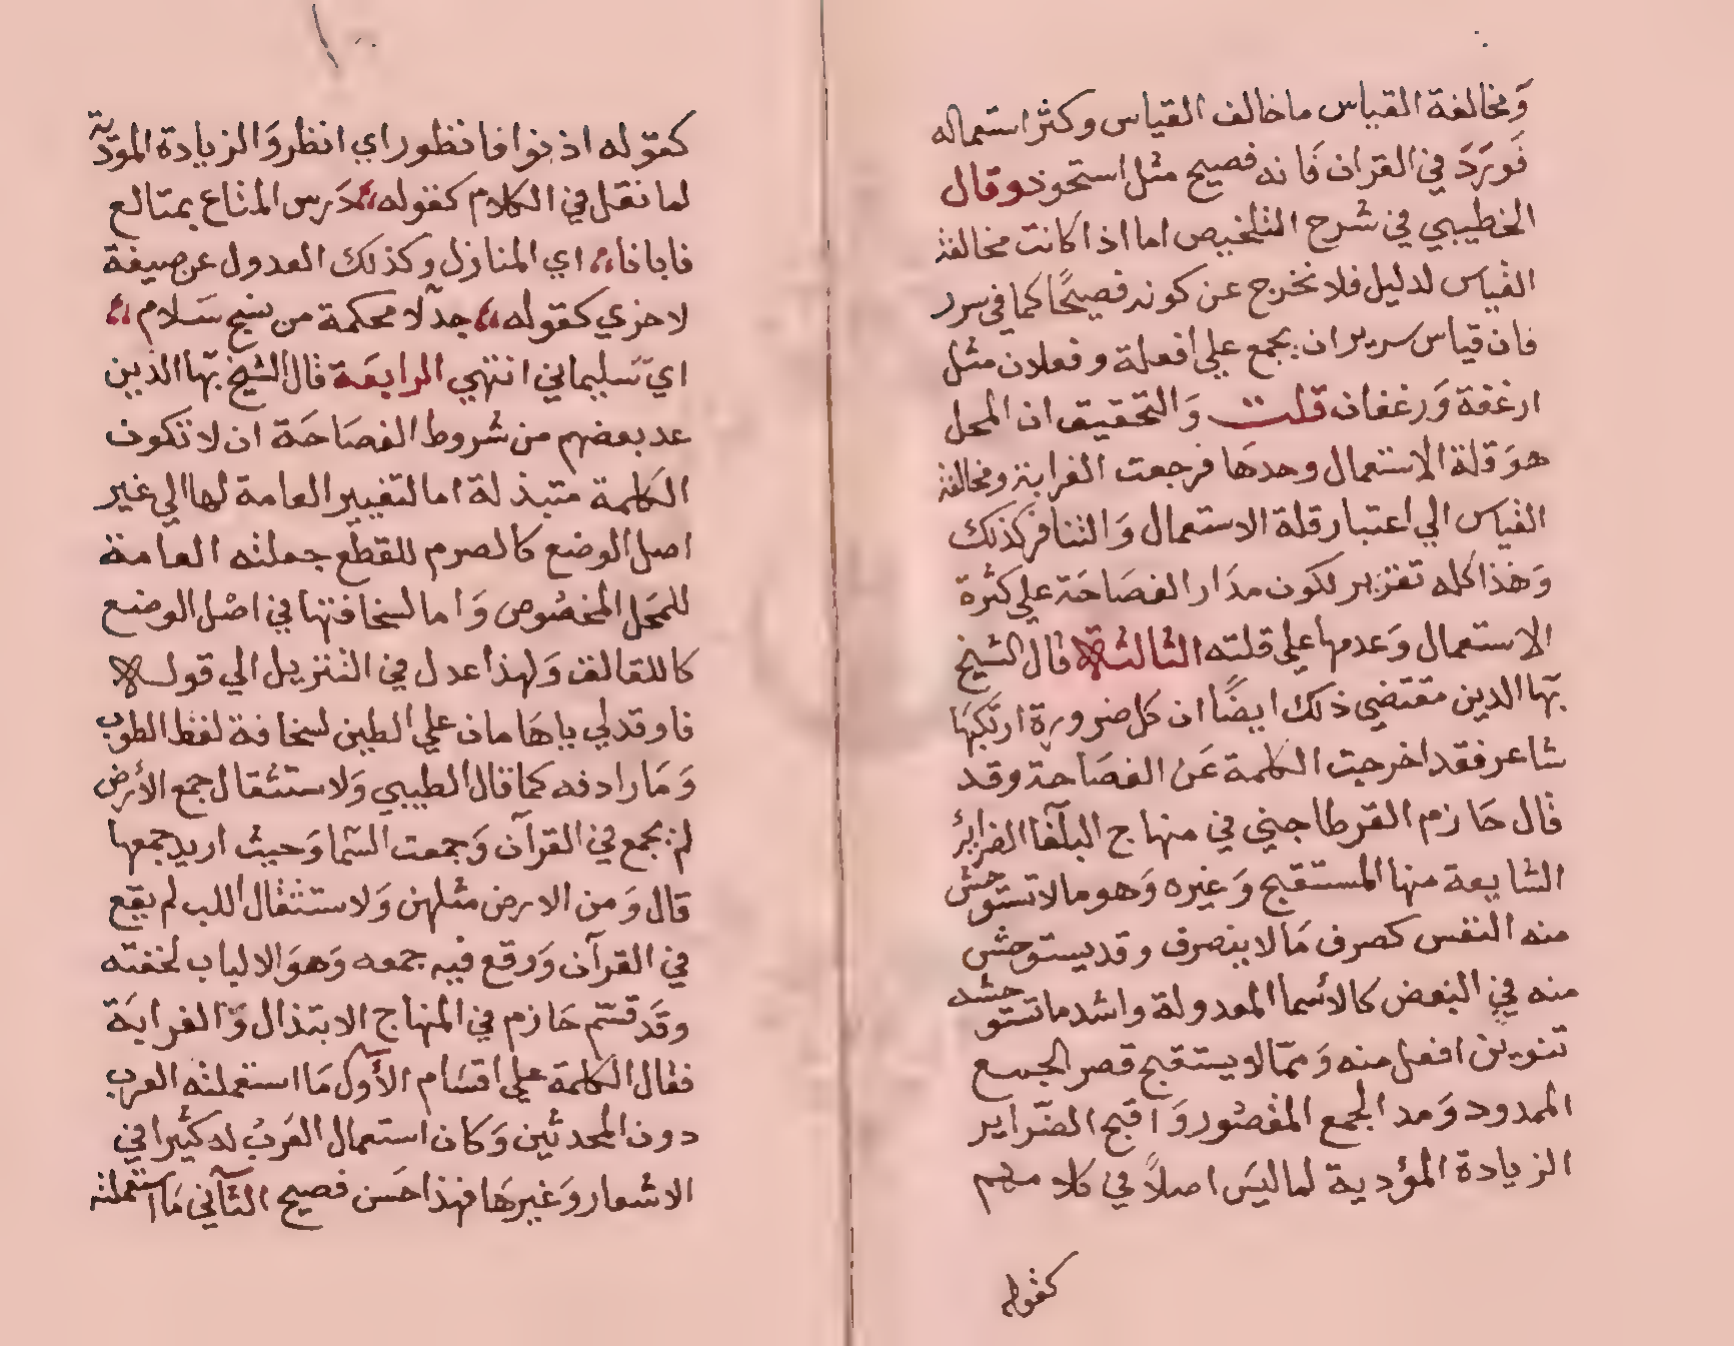 وَمخالفة القياس ما خالف القياس وكثر استعماله
فَورَدَ في القران فَانه فصيح مثل استحوذ وقال
الخطيبي في شرح التلخيص اما اذا كانت مخالفة
القياس لدليل فلا تخرج عن كونه فصيحًا كما في سرر
فان قياس سرير ان يجمع علي افعلة وفعلان مثل
ارغفة وَرغفان قلت وَالتحقيق ان المحل
هوَ قلة الاستعمال وحدهَا فرجعت الغرابة ومخالفة
القياس الي اعتبار قلة الاستعمال وَالتنافر كذلك
وَهَذا كله تقرير لكون مدَار الفصَاحَة علي كثرة
الاستعمال وَعدمها علي قلته الثالثة قال الشيخ
بَها الدين مقتضي ذلك ايضًا ان كل ضرورة ارتكبهَا
شاعر فقد اخرجت الكلمة عَن الفصَاحة وقد
قال حَازم القرطاجني في منهاج البلغا الضراير
الشايعة منها المستقبح وَغيره وَهو مالا تستوحش
منه النفس كصرف مَالا ينصرف وقد يستوحش
منه في البعض كالأسما المعدولة واشد ما تستوحشه
تنوين افعل منه وَممّا لا يستقبح قصر الجمع
الممدود وَمد الجمع المقصُور وَاقبح الضّراير
الزيادة المؤدية لما ليَس اصلاً في كلامهم
كقوله
كقوله اذ نوا فانظور اي انظر وَالزيادة المودّية
لما نقل في الكلام كقوله دَرس المنَاع بمتالع
فابانا اي المنازل وكذلك العدول عن صيغة
لاخري كقوله جدلا محكمة من نسج سَلام
اي سليماني انتهي الرابعَة قال الشيخ بَها الدين
عد بعضهم من شروط الفصَاحَة ان لا تكون
الكلمة متبذلة اما لتغيير العامة لها الي غير
اصل الوضع كالصرم للقطع جعلته العامة
للمَحل المخصُوص وَاما لسخافتها في اصْل الوضع
كاللقالق وَلهذا عدل في التنزيل الي قوله
فاوقد لي ياهَامان علي الطين لسخافة لفظ الطوب
وَمَا رادفه كما قال الطيبي وَلاستثقال جمع الأرض
لم يجمع في القرآن وَجمعت السَّما وَحيث اريد جمعها
قال وَمن الارض مثلهن وَلاستثقال اللب لم يقع
في القرآن وَوقع فيه جمعه وَهوَ الالباب لخفته
وقَد قسّم حَازم في المنهاج الابتذال وَالغرابَة
فقال الكلمة علي اقسَام الأول مَا استعملته العرب
دون المحدثين وَكان استعمال العَربُ له كثيرا في
الاشعار وَغيرهَا فهذا حَسن فصيح الثاني مَا استعملته